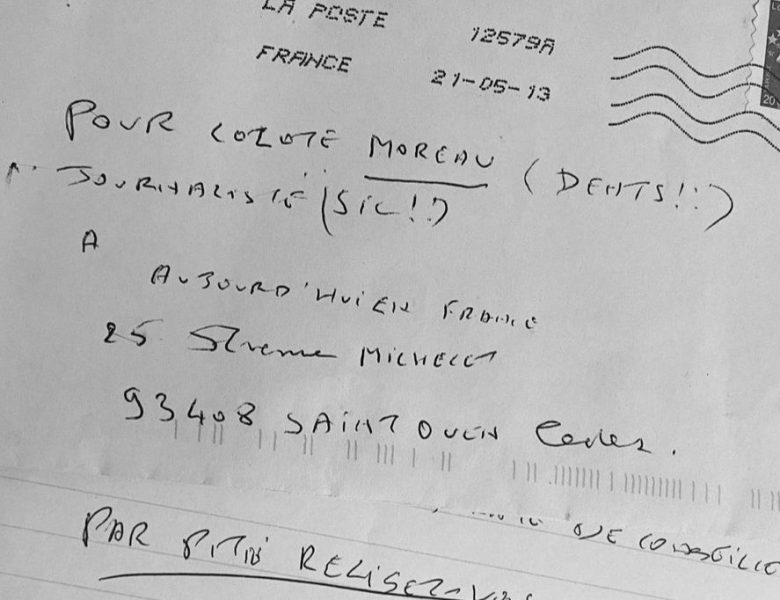 LA POSTE 12579A
FRANCE 21-05-13
POUR MOREAU (DENTS!!)
JOURNALISTE (SIC!!)
A
AUJOURD'HUI EN FRANCE
25 Avenue MICHELET
93408 SAINT OUEN Cedex.
PAR PITIÉ RELISEZ-VOUS